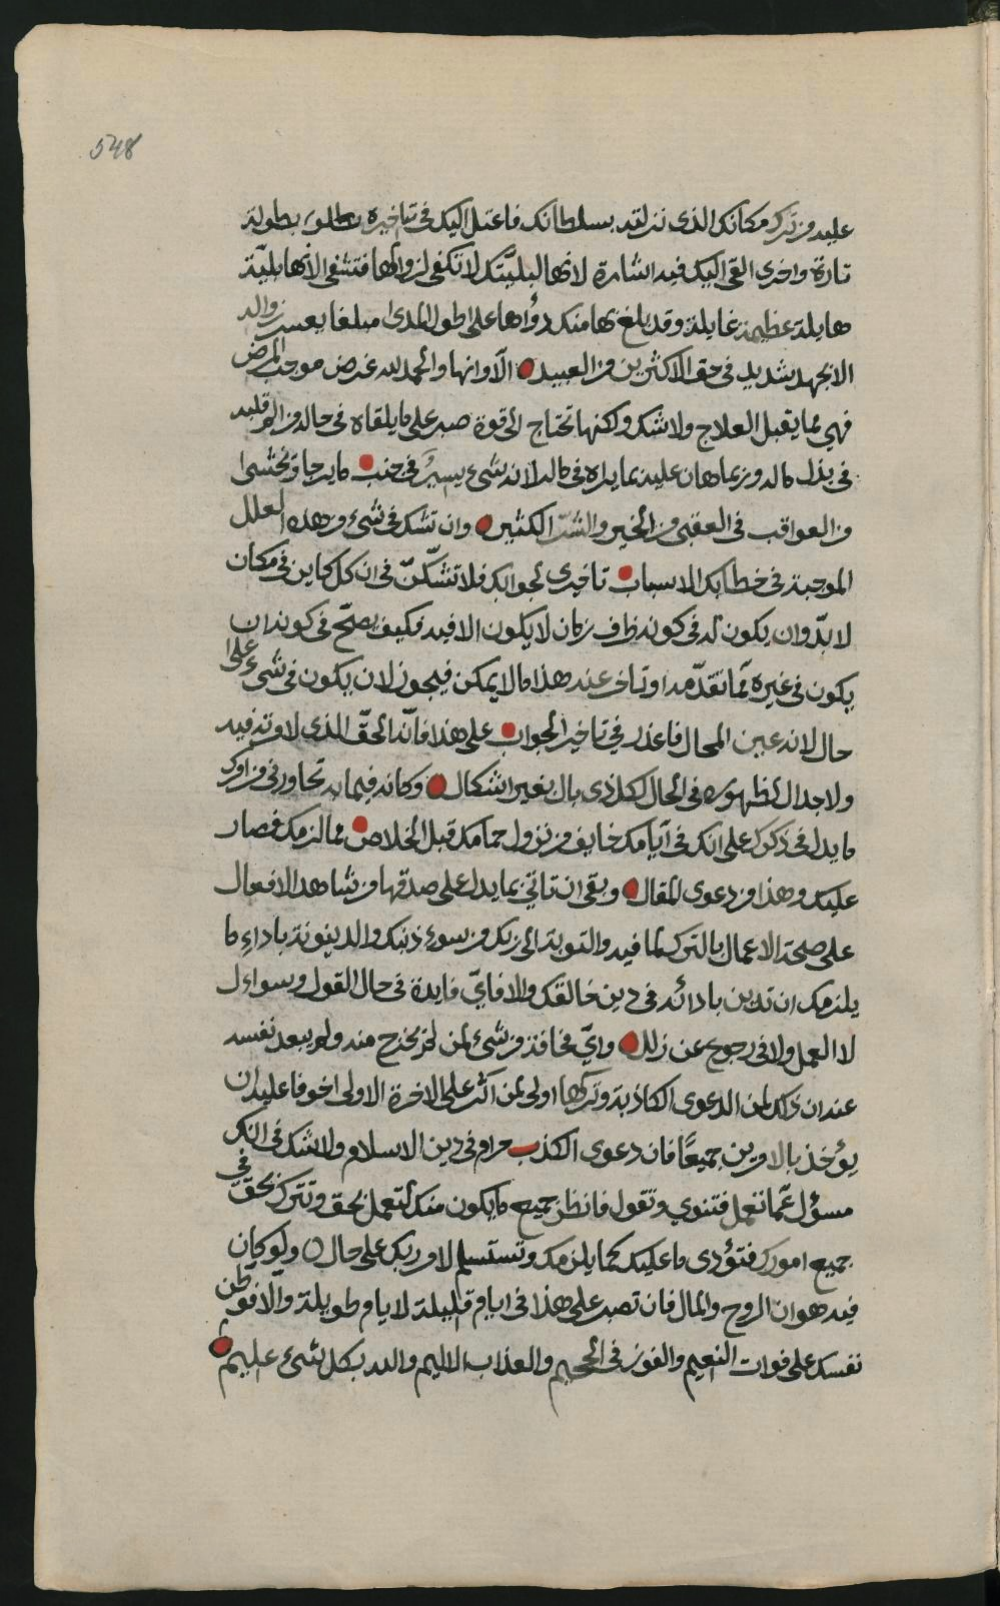 548
عليه من ترك مكانك الذي نزلته بسلطانك فاعتل اليك في تاخيره بطلوبه
تارة واخرى القى اليك فيه اشارة لانها لبليتك لا تكفي لزوالها فتشفي الا انها بلية
هايلة عظيمة غايلة وقد بلغ بها منك دوأها على طول المدى مبلغا يعسر زواله
الا بجهد شديد في حق الاكثرين من العبيد الا وانها والحمد لله عرض موجب المرض
فهي مما يقبل العلاج ولا شك ولكنها تحتاج الى قوة صبر على ما يلقاه في حاله من الم قلبه
في بذل ماله وربما هان عليه بما يراه في ماله لانه شيء يسير في جنب ما يرجا ويخشى
من العواقب في العقبى من الخير والشر الكثير وان تشك في شيء من هذه العلل
الموجبة في خطابك الاسباب تاخيري لجوابك فلا تشكن في ان كل كاين في مكان
لا بد وان يكون له في كونه ظرف زمان لا يكون الا فيه فكيف يصح في كونه ان
يكون في غيره مما تقدمه او تاخر عنه هذا ما لا يمكن فيجوز لان يكون في شيء على
حال لانه عين المحال فاعذر في تاخير الجواب على هذا فانه الحق الذي لا مرية فيه
ولا جدال لظهوره في الحال لكل ذي بال بغير اشكال وكانه فيما به تحاورني من امرك
ما يدل في ذكرك على انك في ايامك خايف من نزول حمامك قبل الخلاص مما لزمك فصار
عليك وهذا من دعوى المقال وبقي ان تاتي بما يدل على صدقها من شاهد الافعال
على صحة الاعمال بالترك لما فيه والتوبة الى ربك من سوء ذنبك والدينونة باداء ما
يلزمك ان تدين بادائه في دين خالقك والا فاي فايدة في حال القول من سواءل
لا العمل ولا في رجوع عن زلل واي مخافة من شيء لمن لم يخرج منه ولم يبعد نفسه
عنه ان ذلك لمن الدعوى الكاذبة وتركها اولى لمن اثر على الاخرة الاولى اخوفا عليه ان
يؤخذ بالامرين جميعا فان دعوى الكذب حرام في دين الاسلام ولا شك في انك
مسؤل عما تعمل فتنوي وتقول فانظر جميع ما يكون منك لتعمل بحق وتترك بحق في
جميع امورك فتؤدى ما عليك كما يلزمك وتستسلم لامر ربك على حال ولو كان
فيه هوان الروح والمال فان تصبر على هذا في ايام قليلة لايام طويلة والا فوطن
نفسك على فوات النعيم والفوز في الجحيم والعذاب الاليم والله بكل شيء عليم